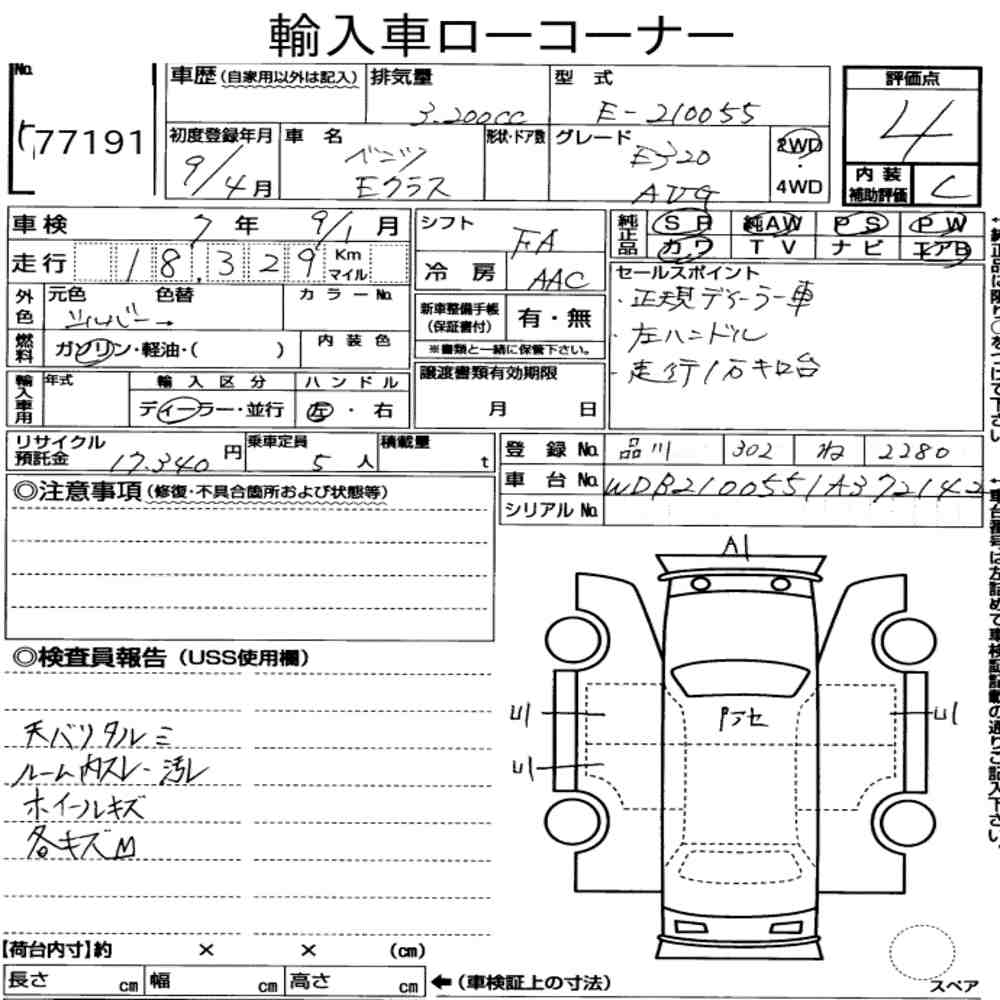 輸入車ローコーナー
No.
77191
車歴(自家用以外は記入)
排気量
3.200cc
型 式
E-210055
初度登録年月
9/4月
車 名
ベンツ
Eクラス
形状・ドア数
グレード
E320
AVG
2WD
・
4WD
評価点
4
内 装
補助評価
C
車検 7年 9/1月
走行 18,329 Km
マイル
シフト
FA
冷 房
AAC
純正品
SR 純AW PS PW
カワ TV ナビ エアB
外色
元色 色替
シルバー→
カラーNo.
燃料
ガソリン・軽油・( )
内 装 色
新車整備手帳
(保証書付)
有・無
※書類と一緒に保管下さい。
セールスポイント
・正規ディーラー車
・左ハンドル
・走行1万キロ台
輸入車用
年式
輸 入 区 分
ディーラー・並行
ハ ン ド ル
左・右
譲渡書類有効期限
月 日
リサイクル
預託金
17.340円
乗車定員
5人
積載量
t
登 録 No. 品川 302 ね 2280
車 台 No. WDB2100551A372142
シリアル No.
◎注意事項(修復・不具合箇所および状態等)
◎検査員報告(USS使用欄)
天バリタルミ
ルーム内スレ・汚レ
ホイールキズ
各キズM
A1
スペア
【荷台内寸】約 × × (cm)
長さ cm 幅 cm 高さ cm
←(車検証上の寸法)